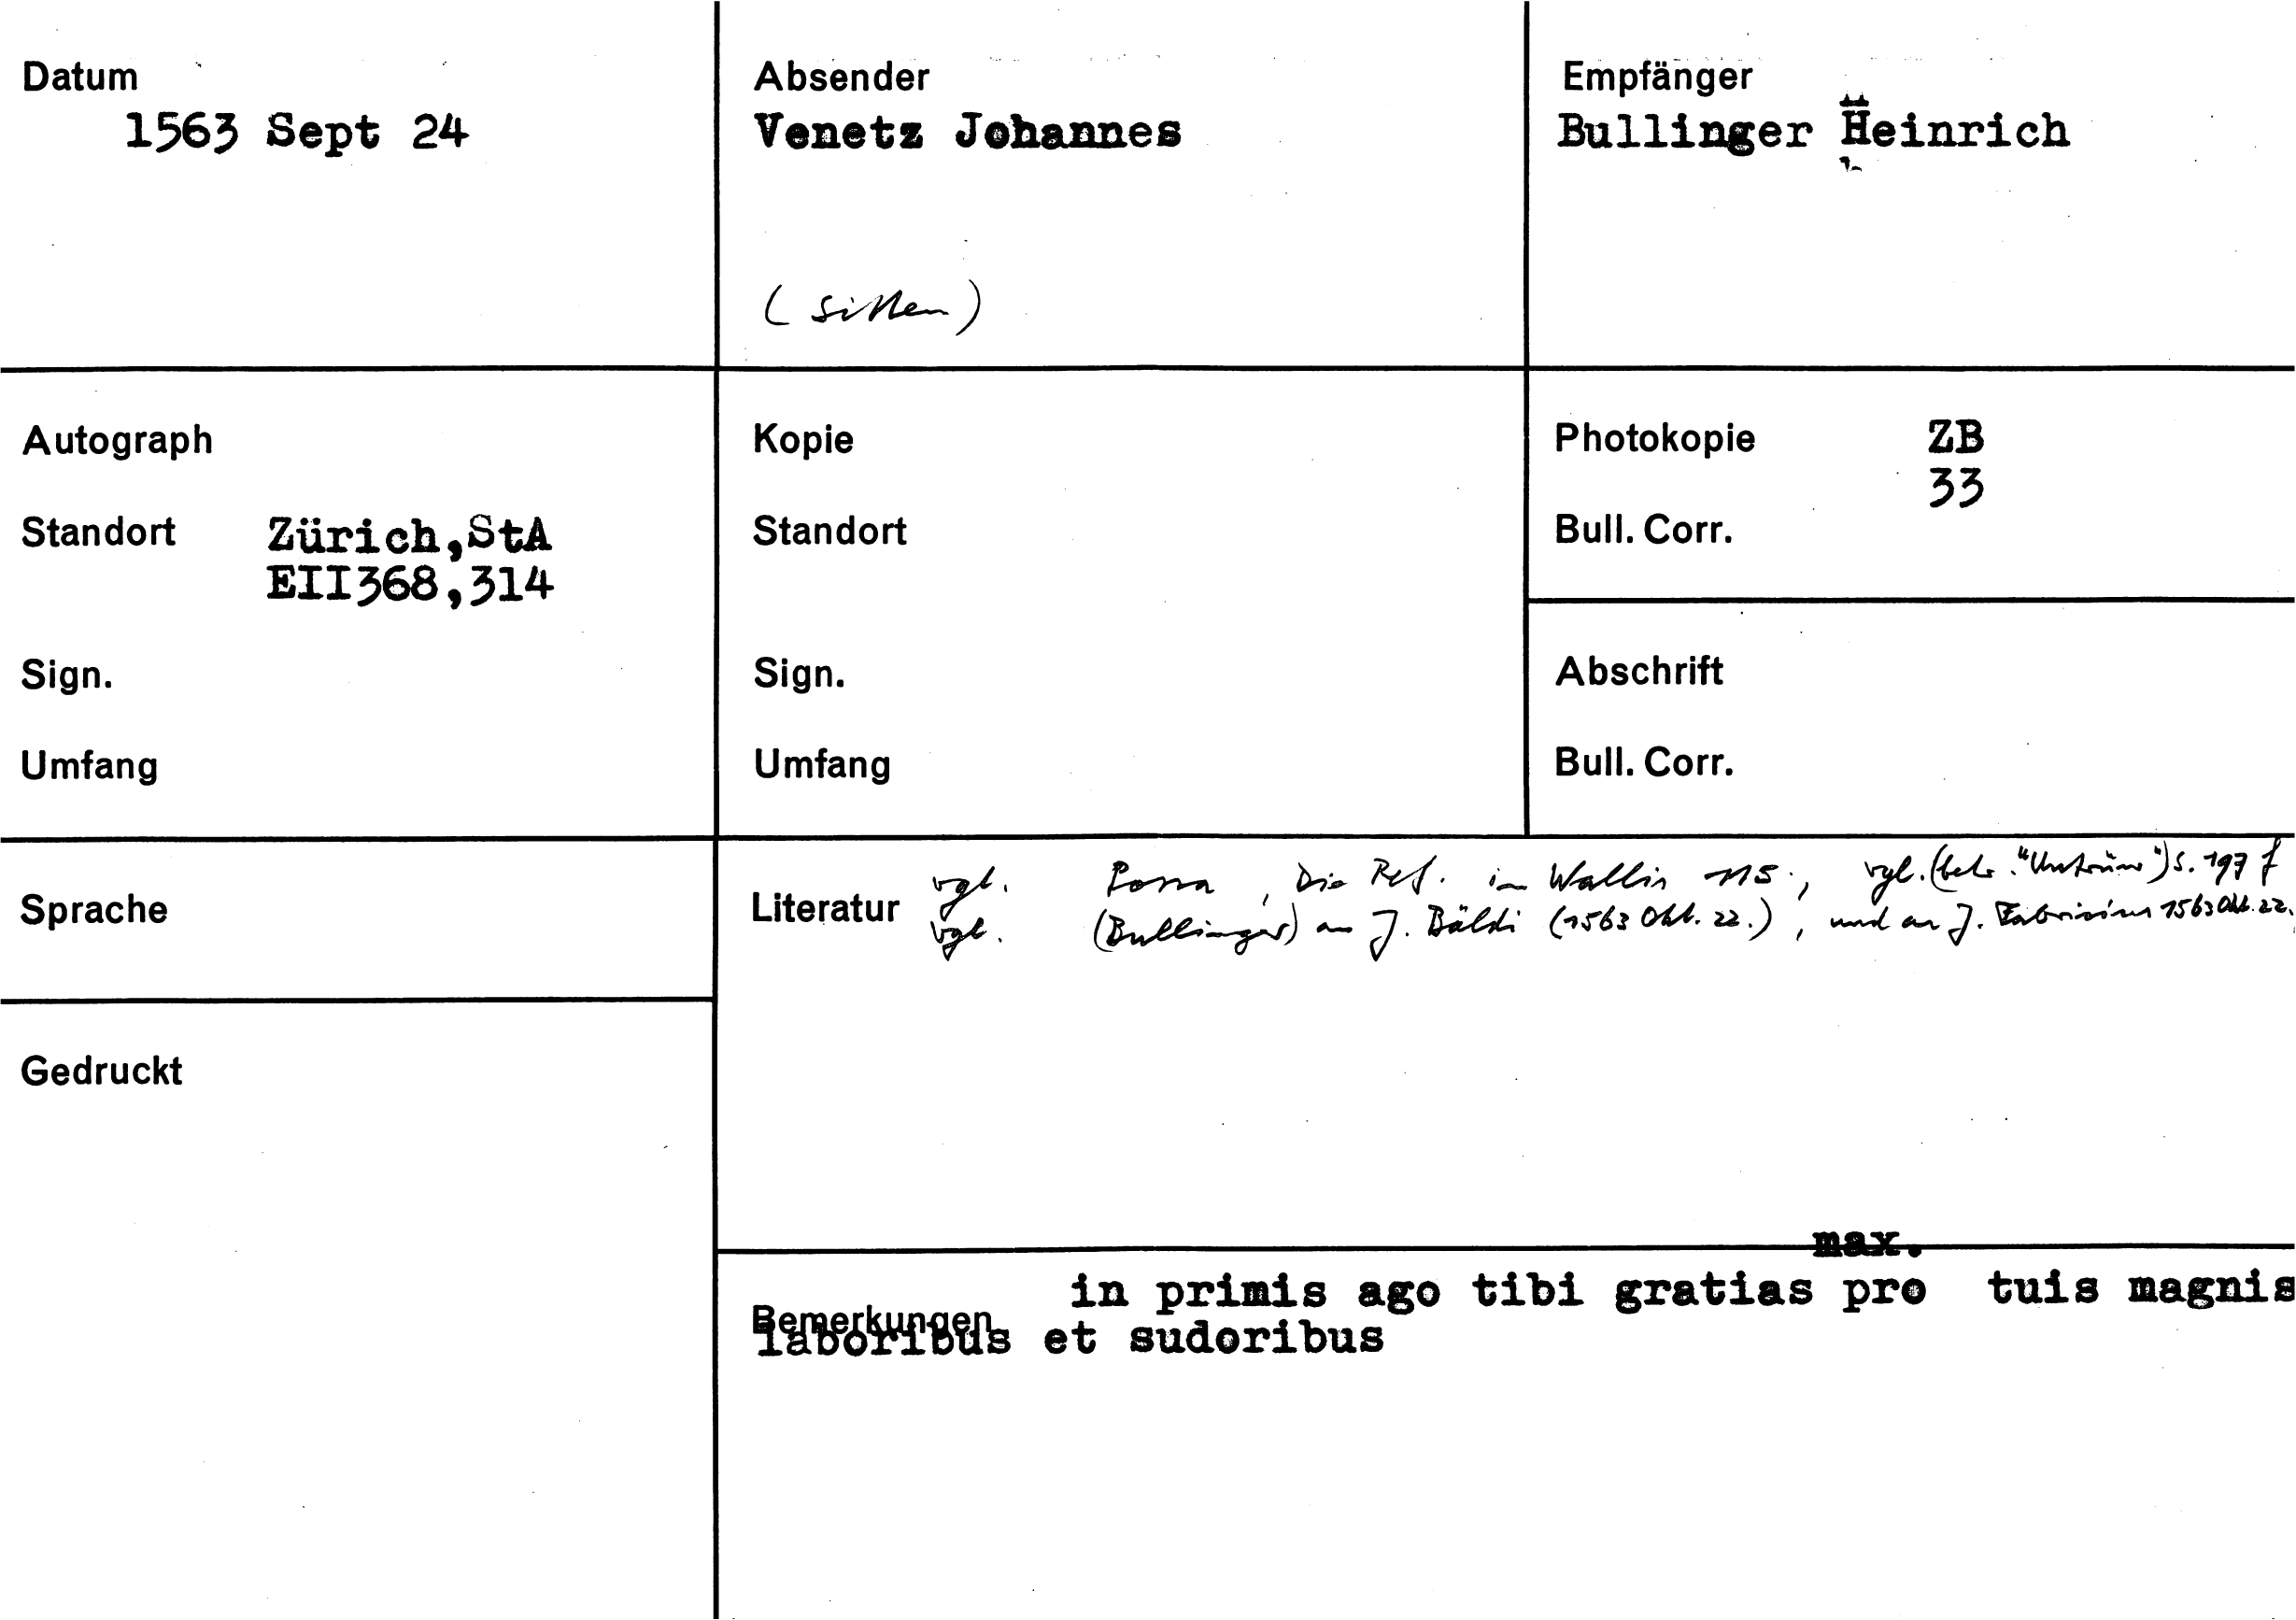 Datum
1563 Sept 24
Absender
Venetz Johannes
(Sitten)
Empfänger
Bullinger Heinrich
Autograph
Standort Zürich,StA
EII368,314
Sign.
Umfang
Kopie
Standort
Sign.
Umfang
Photokopie ZB
33
Bull. Corr.
Abschrift
Bull. Corr.
Sprache
Gedruckt
Literatur vgl. Possa, Die Ref. im Wallis 115., vgl. (betr. ) S. 197 f
vgl. (Bullinger) an J. Bäldi (1563 Okt. 22.), und an J. Fabricius 1563 Okt. 22.
max.
Bemerkungen in primis ago tibi gratias pro tuis magnis
laboribus et sudoribus